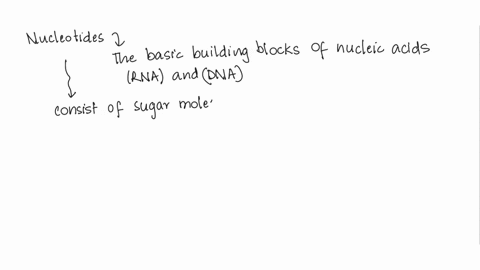 Nucleotides
The basic building blocks of nucleic acids
(RNA) and (DNA)
consist of sugar mole